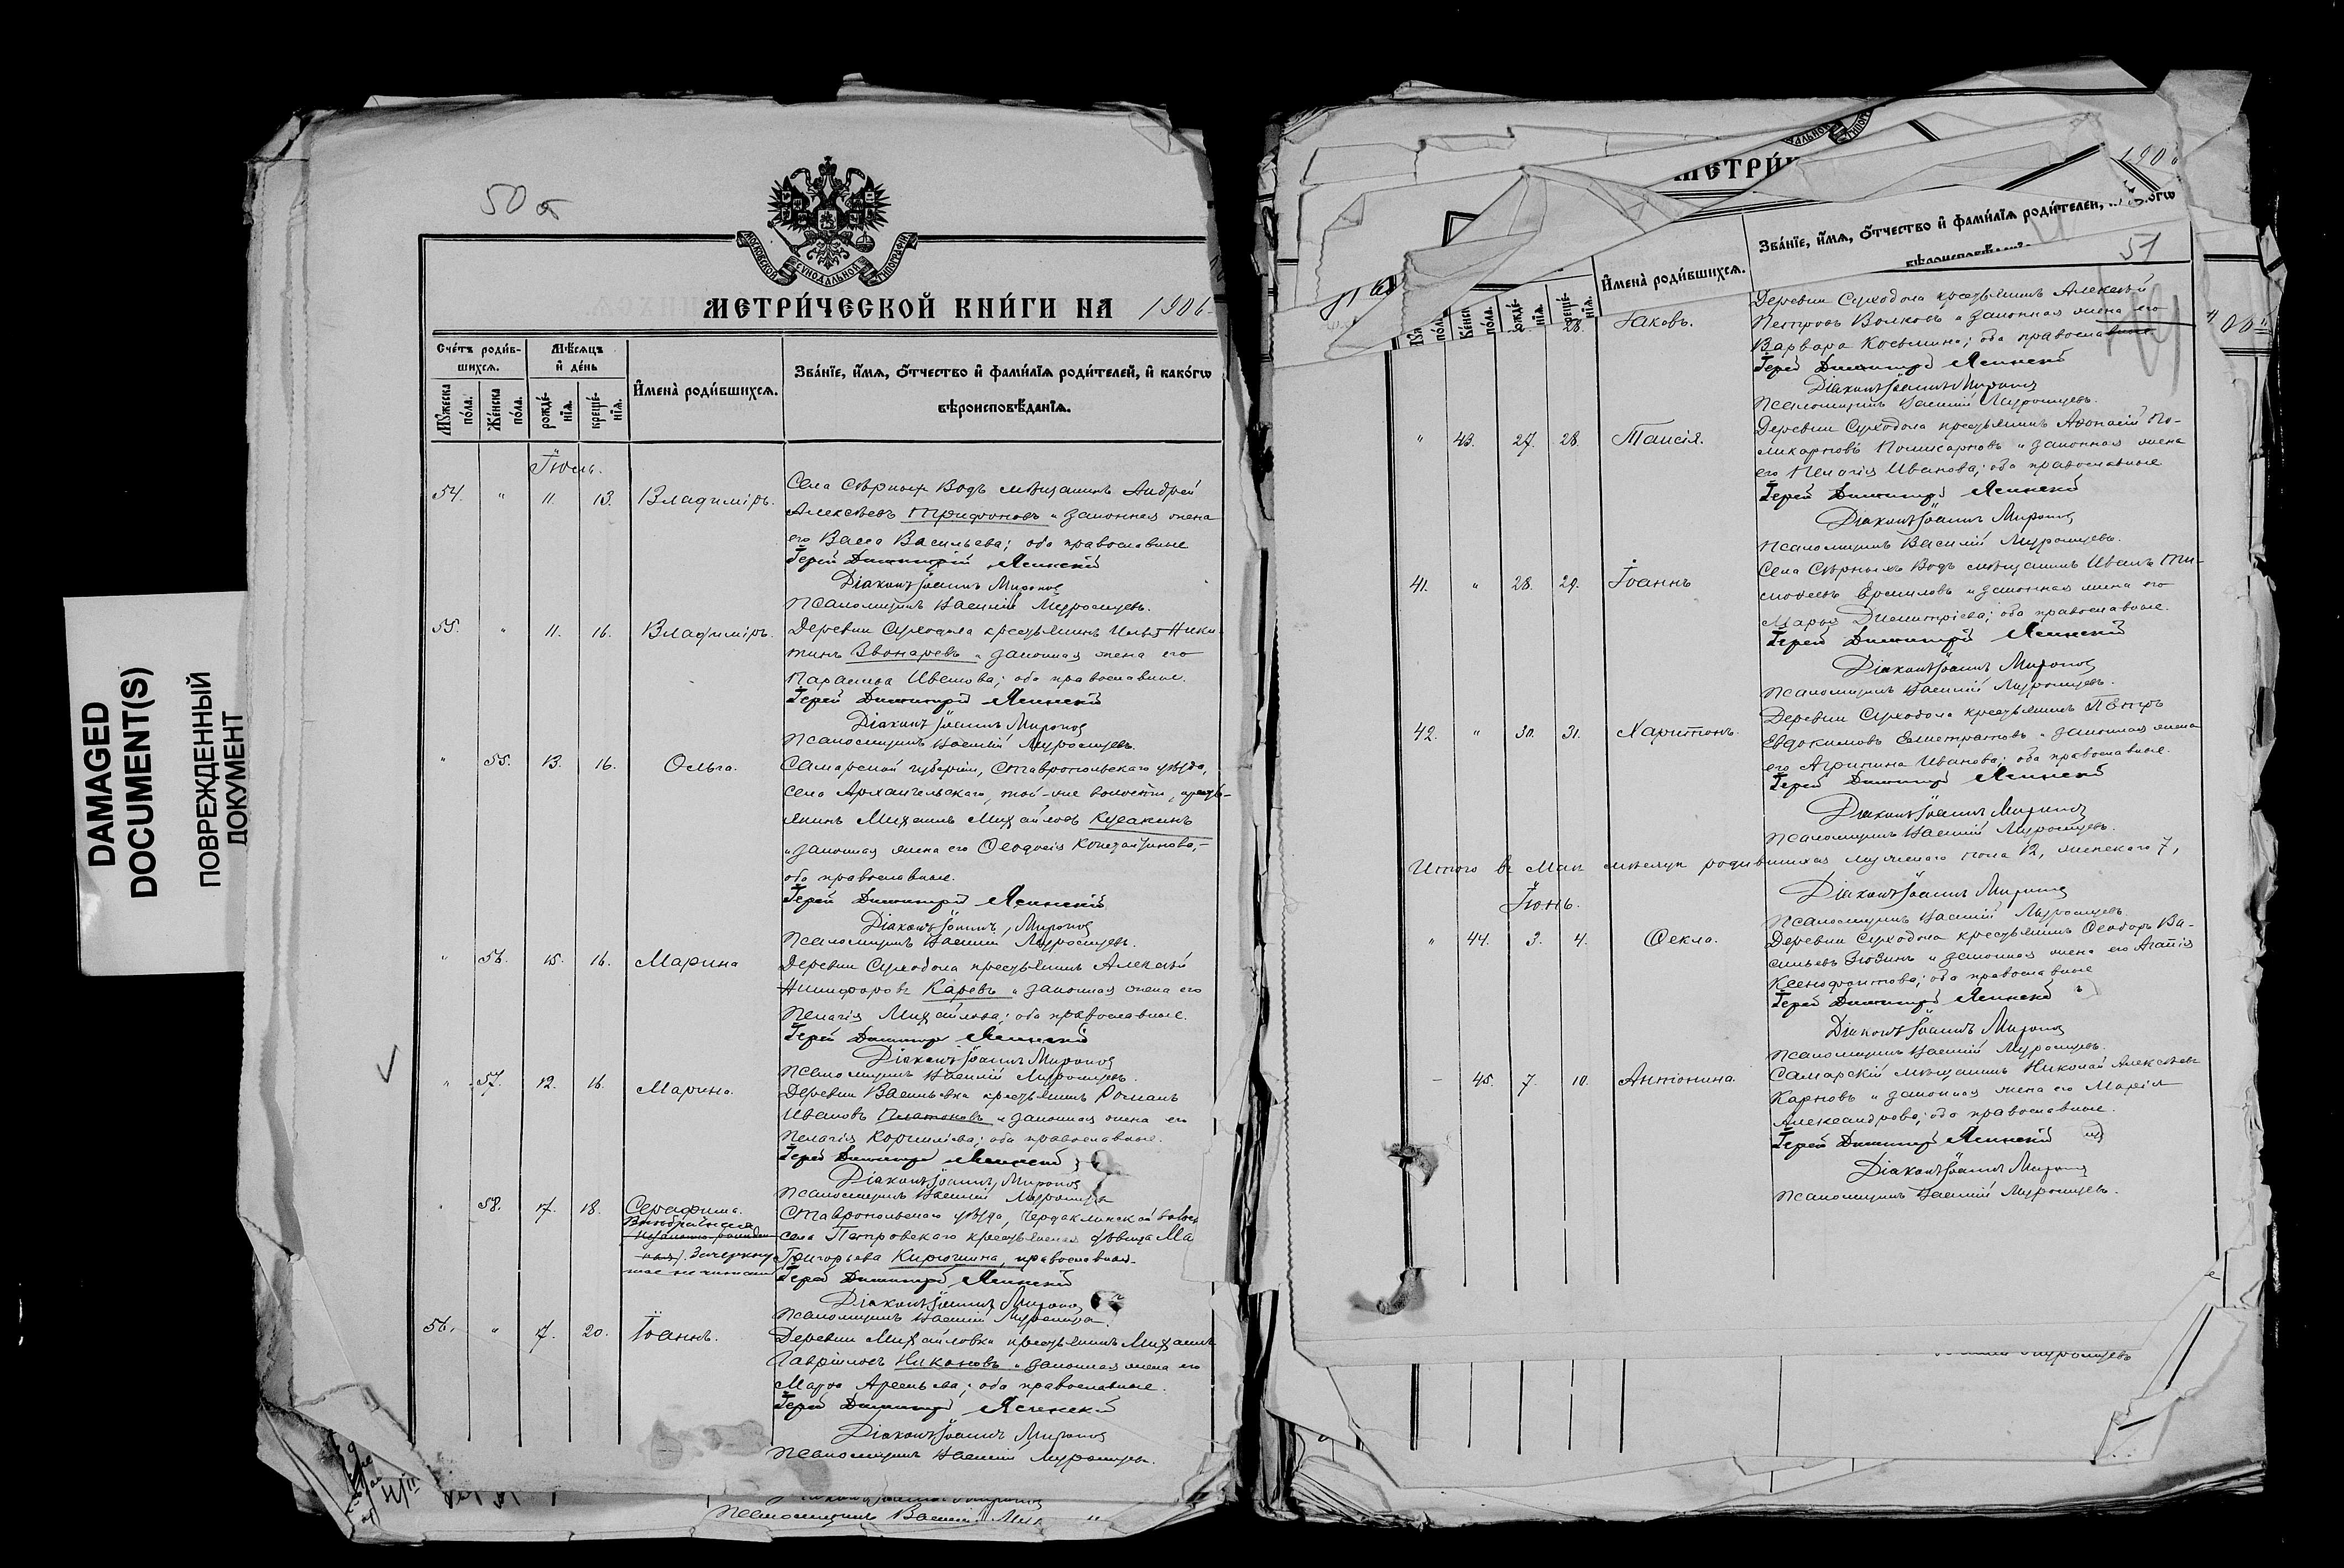 DAMAGED
DOCUMENT(S)
ПОВРЕЖДЕННЫЙ
ДОКУМЕНТ
50 об
МОСКОВСКОЙ СѴНОДАЛЬНОЙ ТИПОГРАФІИ
МЕТРИ́ЧЕСКОЙ КНИ́ГИ НА 1906
Сче́тъ роди́в-
шихсѧ.
Мѣ́сѧцъ
и҆ де́нь
И҆мена̀ роди́вшихсѧ.
Зва́нїе, и҆́мѧ, ѻ҆́тчество и҆ фами́лїѧ роди́телей, и҆ како́гѡ
вѣроисповѣ́данїѧ.
Мꙋ́жеска по́ла.
Же́нска по́ла.
рожде́-нїѧ.
креще́-нїѧ.
Іюль.
54. " 11. 13. Владиміръ.
Села Сѣрныхъ Водъ мѣщанинъ Андрей
Алексѣевъ Трифоновъ и законная жена
его Васса Васильева; оба православные
Іерей Димитрій Ясинскій
Діаконъ Іоаннъ Миронов
Псаломщикъ Василій Муромцевъ.
55. " 11. 16. Владиміръ.
Деревни Суходола крестьянинъ Илья Ники-
тинъ Звонаревъ и законная жена его
Параскева Ивanова; оба православные.
Іерей Димитрій Ясинскій
Діаконъ Іоаннъ Миронов
Псаломщикъ Василій Муромцевъ.
" 55. 13. 16. Ольга.
Самарской губерніи, Ставропольскаго уѣзда,
села Архангельскаго, той-же волости, кресть-
янинъ Михаилъ Михайловъ Кудакинъ
и законная жена его Ѳеодосія Константинова,-
оба православные.
Іерей Димитрій Ясинскій
Діаконъ Іоаннъ Миронов
Псаломщикъ Василій Муромцевъ.
" 56. 15. 16. Марина
Деревни Суходола крестьянинъ Алексѣй
Никифоровъ Каревъ и законная жена его
Пелагія Михайлова; оба православные.
Іерей Димитрій Ясинскій
Діаконъ Іоаннъ Миронов
Псаломщикъ Василій Муромцевъ.
" 57. 12. 16. Марина.
Деревни Васильевки крестьянинъ Романъ
Ивановъ Платоновъ и законная жена его
Пелагія Корнилієва; оба православные.
Іерей Димитрій Ясинскій
Діаконъ Іоаннъ Миронов
Псаломщикъ Василій Муромцевъ
" 58. 17. 18. Серафима.
Ставропольскаго уѣзда, Чердаклинской волос
села Петровскаго крестьянская дѣвица Ма
Григорьева Кирюшина, православная.
Іерей Димитрій Ясинскій
Діаконъ Іоаннъ Миронов
Псаломщикъ Василій Муромцевъ
56. " 17. 20. Іоаннъ.
Деревни Михайловки крестьянинъ Михаилъ
Гавріиловъ Никоновъ и законная жена его
Марѳа Арсеньева; оба православные.
Іерей Димитрій Ясинскій
Діаконъ Іоаннъ Миронов
Псаломщикъ Василій Муромцевъ.
МЕТРИ́
190
И҆мена̀ роди́вшихсѧ.
Зва́нїе, и҆́мѧ, ѻ҆́тчество и҆ фами́лїѧ роди́телей,
51
28. Іаковъ.
Деревни Суходола крестьянинъ Алексѣй
Петровъ Волковъ и законная жена его
Варвара Косьмина; оба православные
Іерей Димитрій Ясинскій
Діаконъ Іоаннъ Миронов
Псаломщикъ Василій Муромцевъ.
" 43. 27. 28. Таисія.
Деревни Суходола крестьянинъ Аѳанасій По-
ликарповъ Поликарповъ и законная жена
его Пелагія Иванова; оба православные
Іерей Димитрій Ясинскій
Діаконъ Іоаннъ Миронов
Псаломщикъ Василій Муромцевъ.
41. " 28. 29. Іоаннъ
Села Сѣрныхъ Водъ мѣщанинъ Иванъ Ти-
моѳеевъ Ермиловъ и законная жена его
Марѳа Димитріева; оба православные.
Іерей Димитрій Ясинскій
Діаконъ Іоаннъ Миронов
Псаломщикъ Василій Муромцевъ.
42. " 30. 31. Харитонъ.
Деревни Суходола крестьянинъ Петръ
Евдокимовъ Елистратовъ и законная жена
его Агрипина Иванова; оба православные.
Іерей Димитрій Ясинскій
Діаконъ Іоаннъ Миронов
Псаломщикъ Василій Муромцевъ.
Итого въ Маѣ мѣсяцѣ родившихся мужескаго пола 12, женскаго 7,
Діаконъ Іоаннъ Миронов
Псаломщикъ Василій Муромцевъ.
Іюнь.
" 44. 3. 4. Ѳекла.
Деревни Суходола крестьянинъ Ѳеодоръ Ва-
сильевъ Зюзинъ и законная жена его Агапія
Ксенофонтова; оба православные
Іерей Димитрій Ясинскій
Діаконъ Іоаннъ Миронов
Псаломщикъ Василій Муромцевъ.
- 45. 7. 10. Антонина.
Самарскій мѣщанинъ Николай Алексѣевъ
Карповъ и законная жена его Марія
Александрова; оба православные.
Іерей Димитрій Ясинскій
Діаконъ Іоаннъ Миронов
Псаломщикъ Василій Муромцевъ.